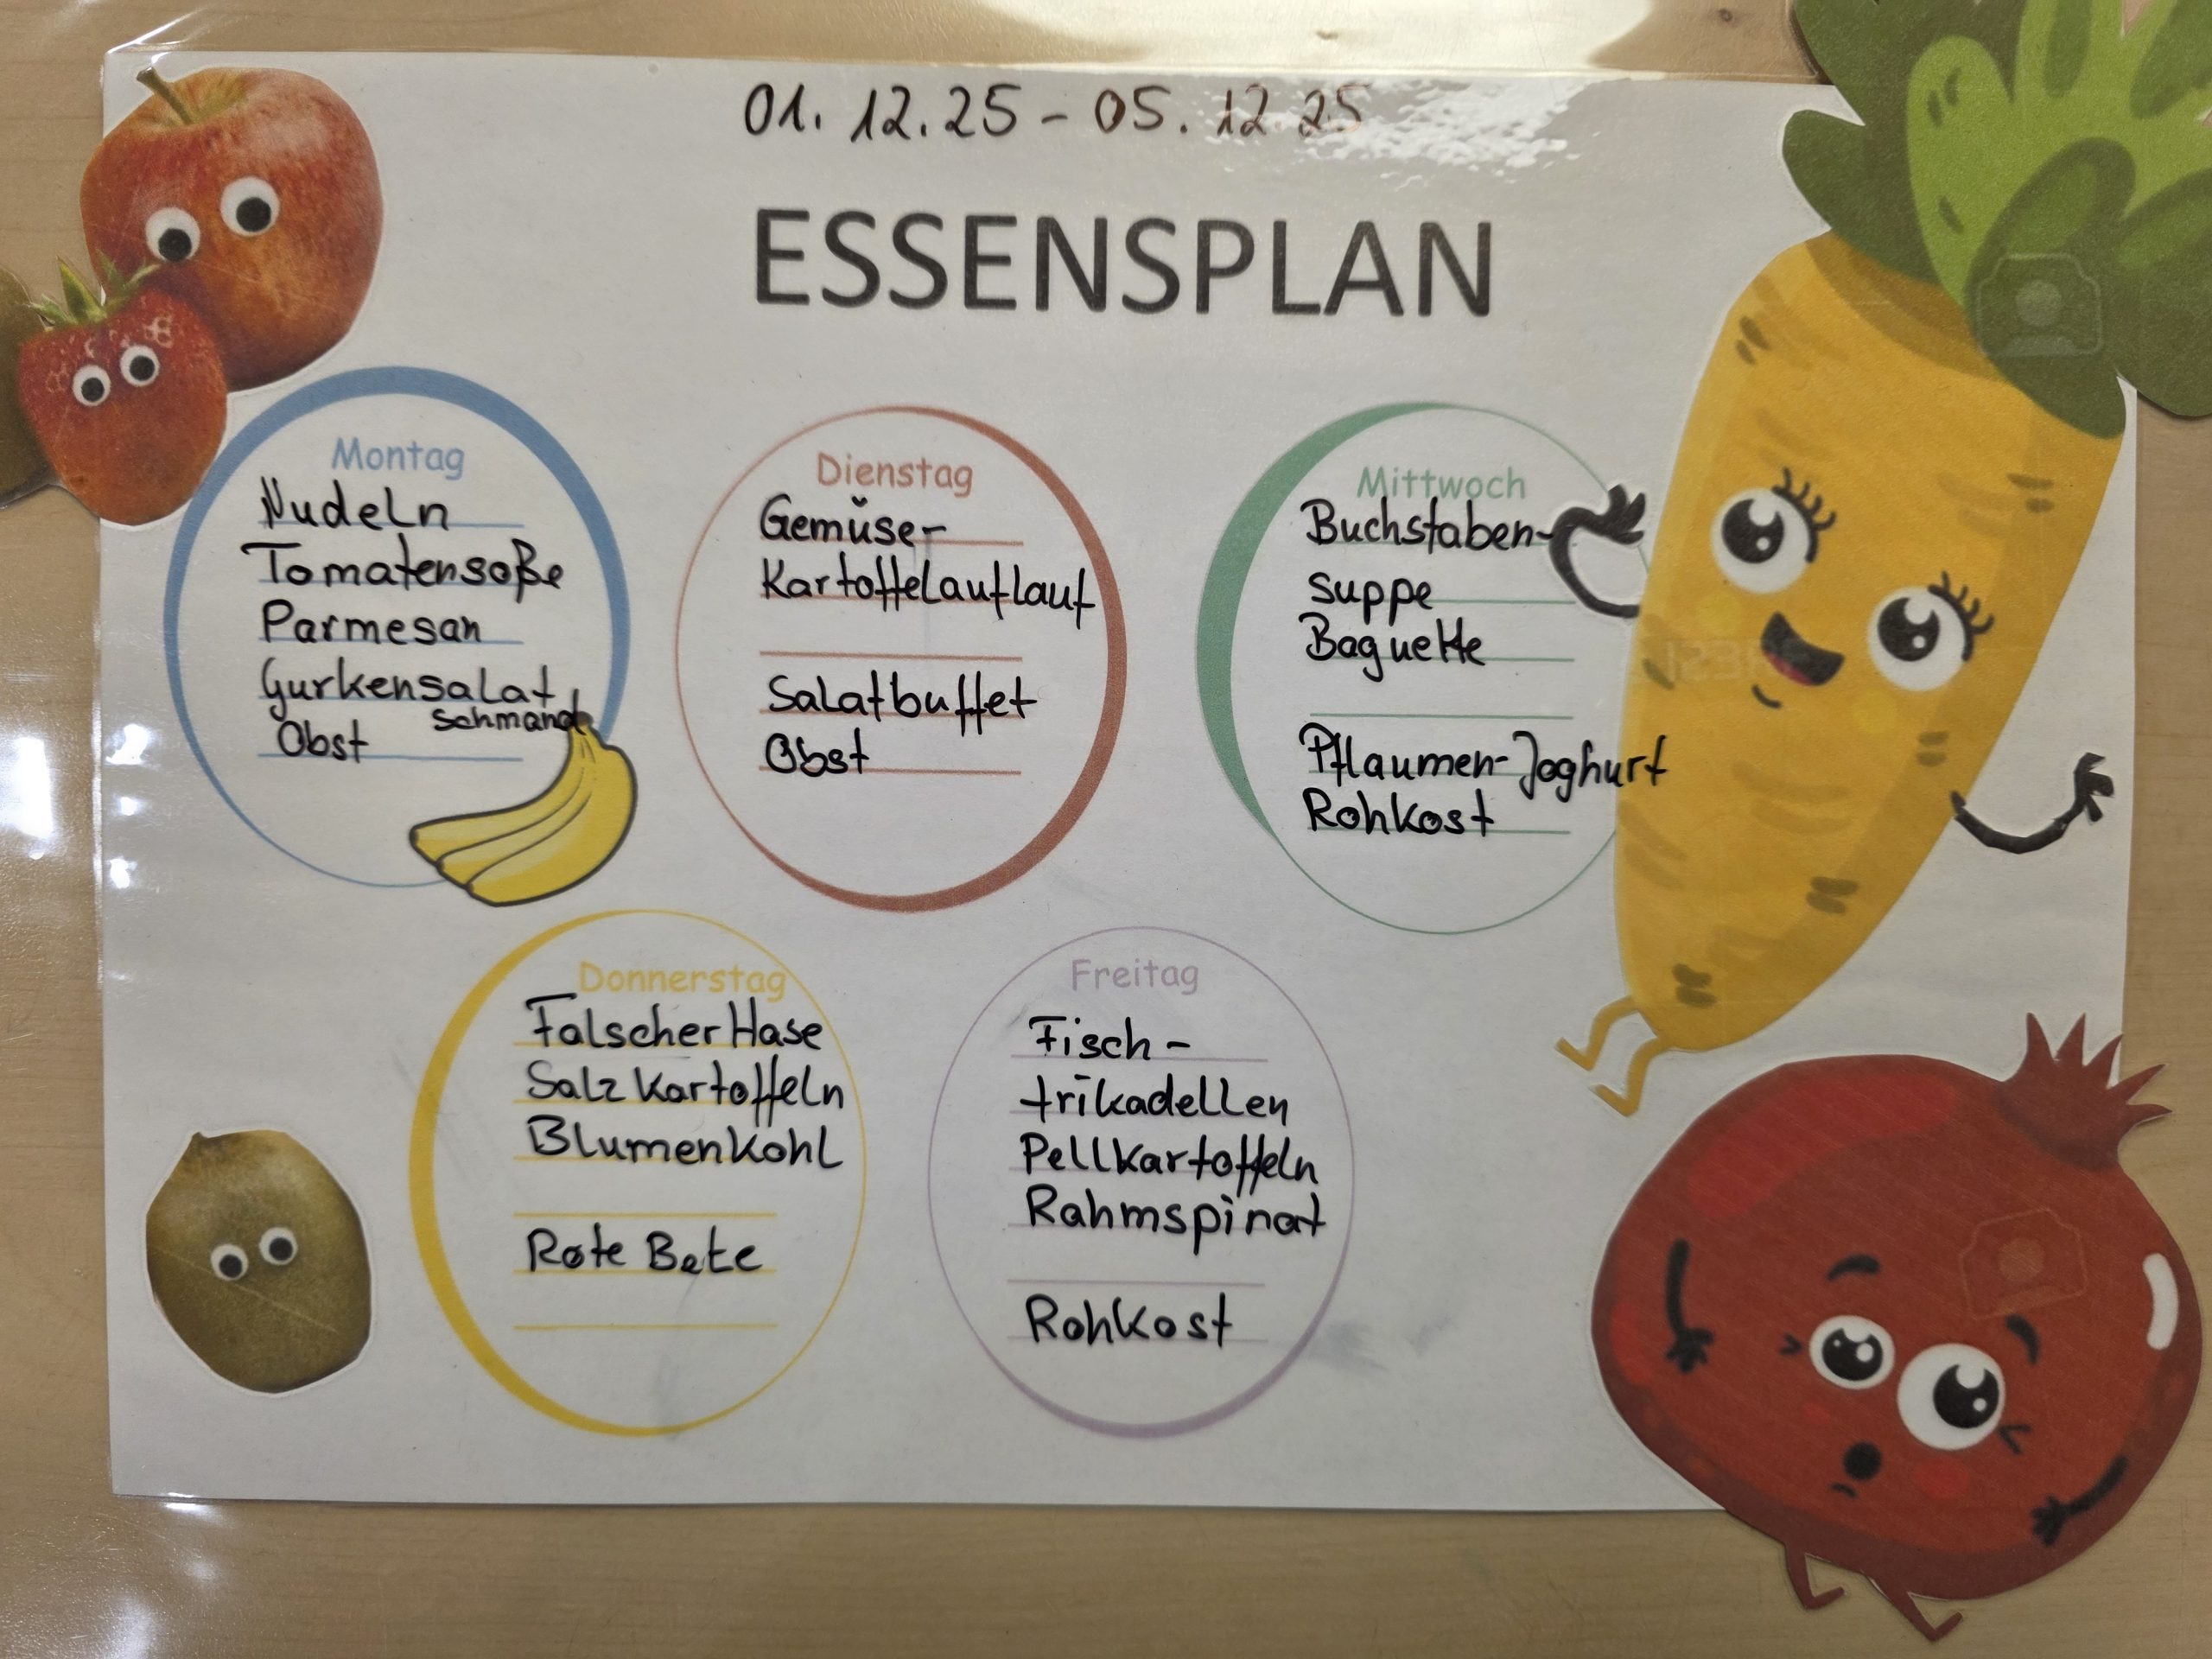 01.12.25 - 05.12.25
ESSENSPLAN
Montag
Nudeln
Tomatensoße
Parmesan
Gurkensalat
Schmand
Obst
Dienstag
Gemüse-
Kartoffelauflauf
Salatbuffet
Obst
Mittwoch
Buchstaben-
suppe
Baguette
Pflaumen-Joghurt
Rohkost
Donnerstag
Falscher Hase
Salzkartoffeln
Blumenkohl
Rote Bete
Freitag
Fisch-
frikadellen
Pellkartoffeln
Rahmspinat
Rohkost